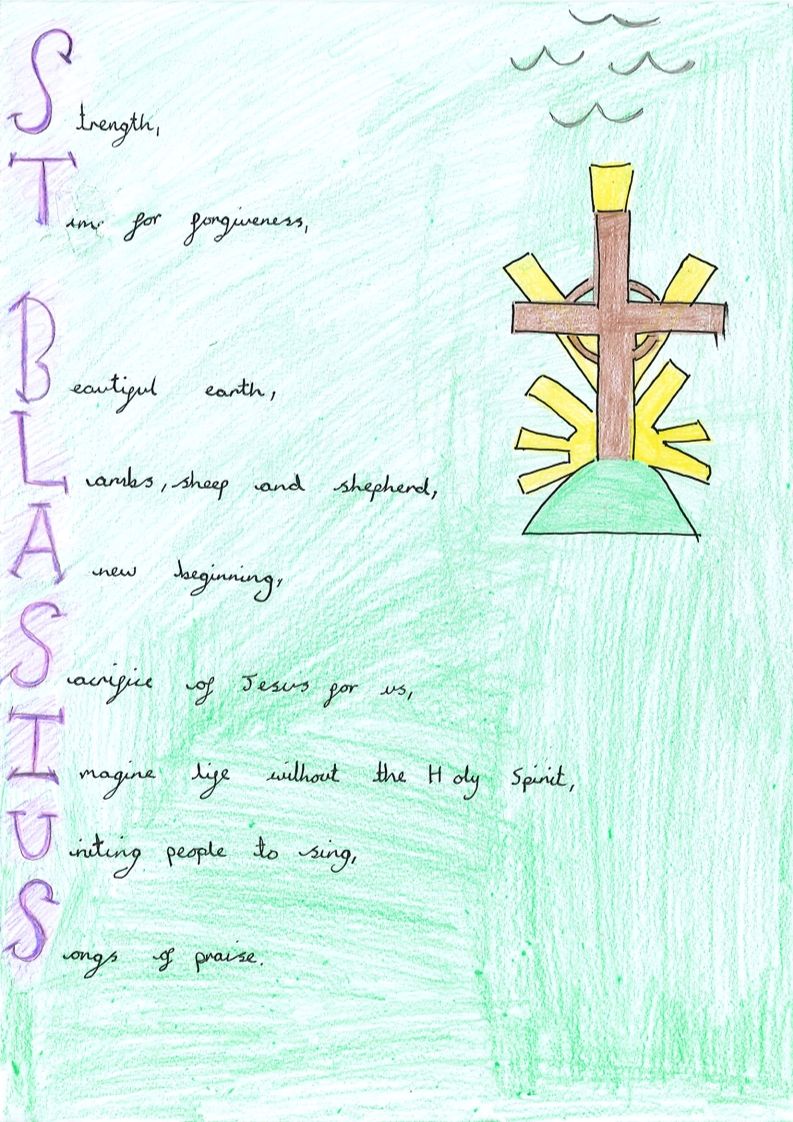 Strength,
Time for forgiveness,
Beautiful earth,
Lambs, sheep and shepherd,
A new beginning,
Sacrifice of Jesus for us,
Imagine life without the Holy Spirit,
Uniting people to sing,
Songs of praise.